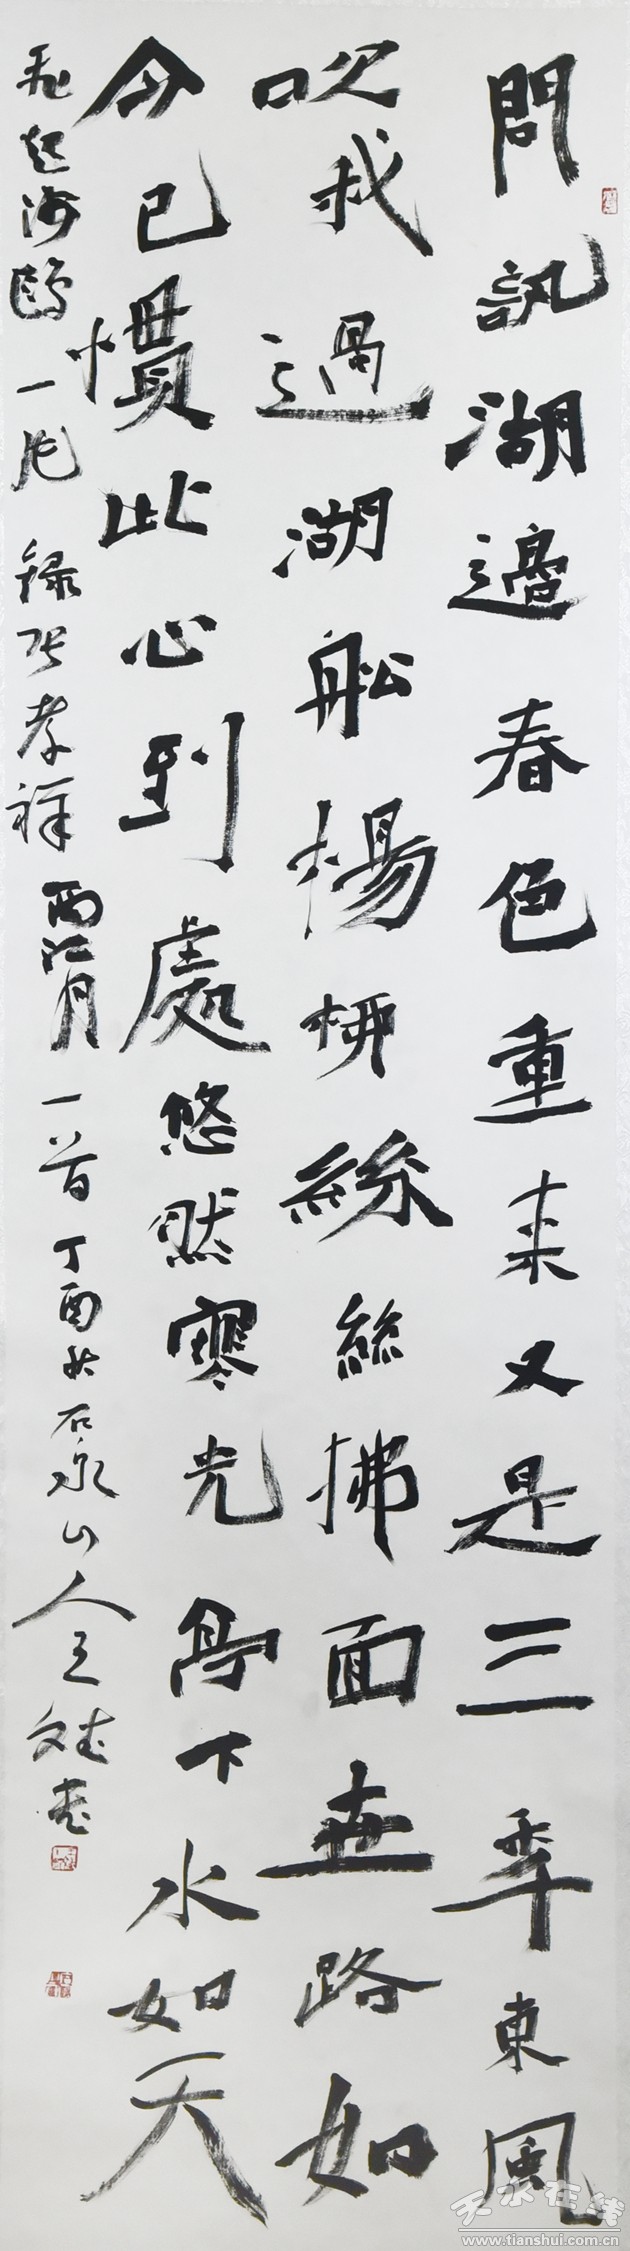 問訊湖邊春色重来又是三年東風
吹我過湖船楊柳絲絲拂面世路如
今已慣此心到處悠然寒光亭下水如天
飛起沙鷗一片 錄张孝祥西江月一首 丁酉秋石泉山人王文斌書
天水在线
www.tianshui.com.cn